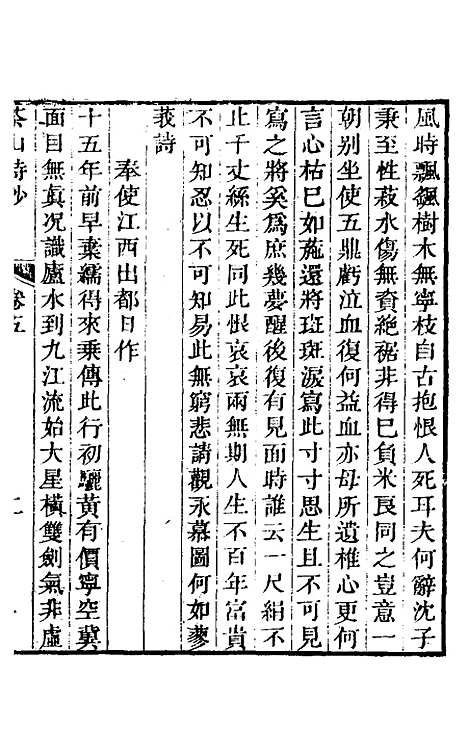 風時飄飖樹木無寧枝自古抱恨人死耳夫何辭沈子
秉至性菽水傷無資絶裾非得已負米良同之豈意一
朝别坐使五鼎虧泣血復何益血亦母所遺椎心更何
言心枯已如葹還將斑斑淚寫此寸寸思生且不可見
寫之將奚爲庶幾夢醒後復有見面時誰云一尺絹不
止千丈絲生死同此恨哀哀兩無期人生不百年富貴
不可知忍以不可知易此無窮悲請觀永慕圖何如蓼
莪詩
奉使江西出都日作
十五年前早棄繻得來乘傳此行初驪黄有價寧空冀
面目無眞况識盧水到九江流始大星横雙劍氣非虛
茶山詩鈔
卷五
二